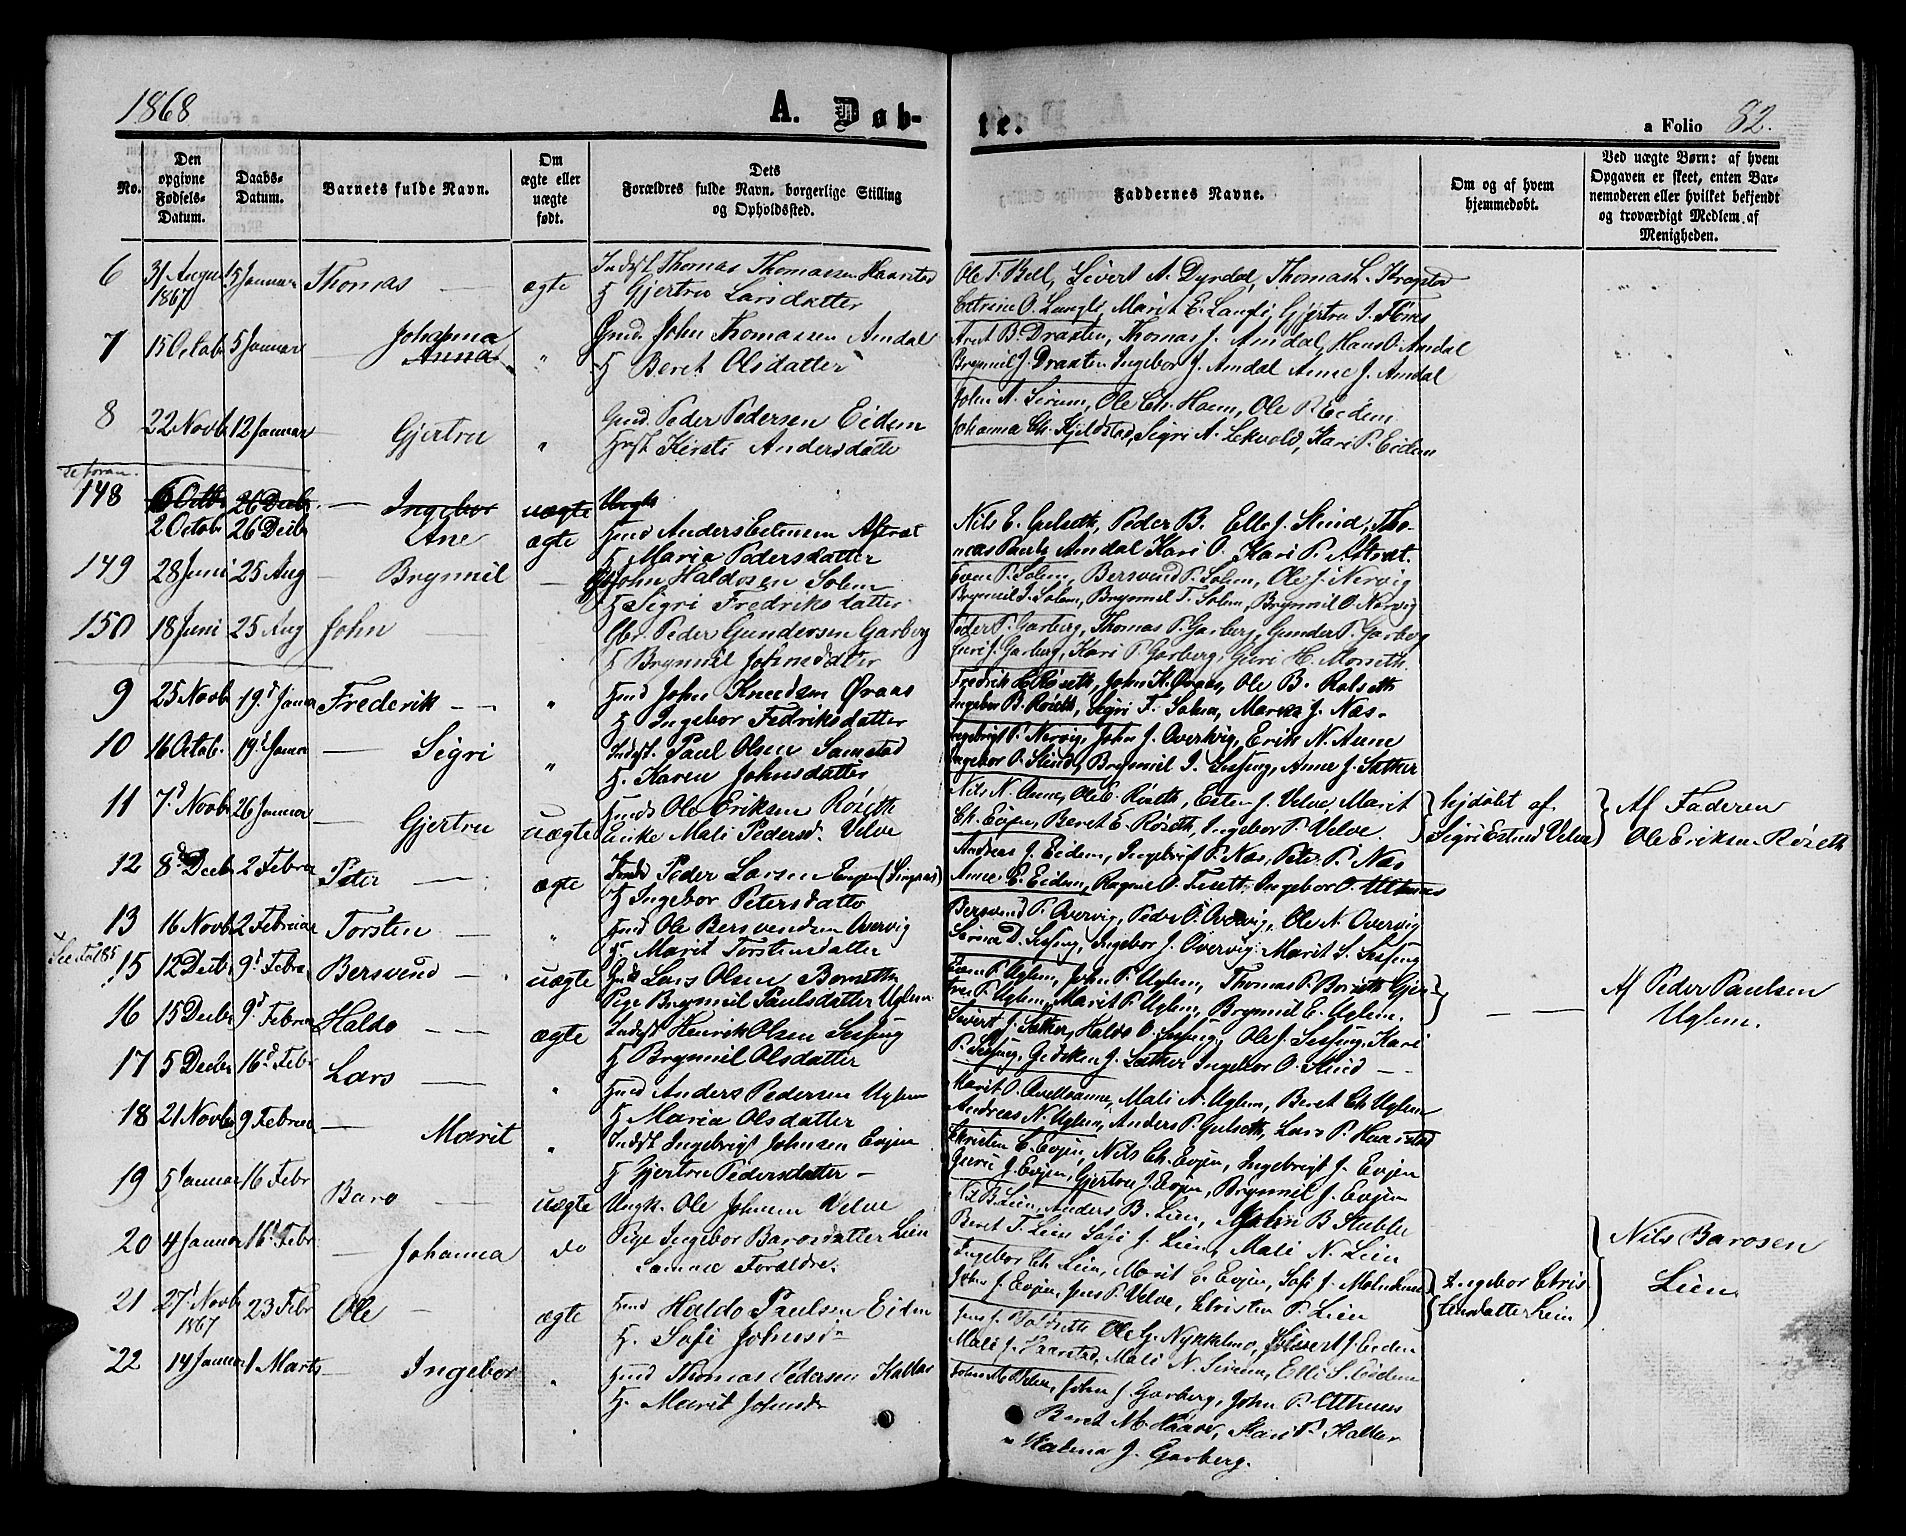 1868
A. Døb-
te.
a Folio 82.
No.
Den opgivne Fødsels-Datum.
Daabs-Datum.
Barnets fulde Navn.
Om ægte eller uægte født.
Dets Forældres fulde Navn, borgerlige Stilling og Opholdssted.
Faddernes Navne.
Om og af hvem hjemmedøbt.
Ved uægte Børn: af hvem Opgaven er skeet, enten Barnemoderen eller hvilket bekjendt og troværdigt Medlem af Menigheden.
6 31 August 1867 5 Januar Thomas ægte Indst. Thomas Thomassen Haarstad
H Gjertru Larsdatter
Ole T. Bell, Sivert A. Dyrdal, Thomas L.
O. Langli, Marit E. Langli, Gjertru J.
7 15 Octob 5 Januar Johanna Anna " John Thomassen Amdal
H Beret Olsdatter
Arnt B. Draxten, Thomas J. Amdal, Hans O. Amdal
Brynnil J. Draxten Ingebor J. Amdal Anne J. Amdal
8 22 Novb 12 Januar Gjertru " Gmd. Peder Pedersen Eidem
Hust Kirsti Andersdatte
John A. Sirum, Ole Ch. Ole P. Eidem
Johanna Ch. Kjeldstad, Sigri A. Lekvold, Kari P. Eidem
se foran
148 6 Octb 26 Decb Ingebor uægte Ungk
2 Octob 26 Decb Ane ægte Hmd Anders Estensen Aftret
H Maria Pedersdatter
Nils E. Gulseth, Peder B. Elle J. Stind, Tho-
mas Pauls Amdal Kari O. Kari P. Aftret.
149 28 Juni 25 Aug Brynnil John Haldosen Solem
H Sigri Fredriksdatter
Even P. Solem, Bersvend P. Solem, Ole J. Nervig
Brynnil J. Solem, Brynnil T. Solem, Brynnil O. Nervig
150 18 Juni 25 Aug John Gbr. Peder Gundersen Garberg
H Brynnil Johnsdatter
Peder P. Garberg, Thomas P. Garberg, Gunder P. Garberg
Guri J. Garberg, Kari P. Garberg, Guri H. Morseth.
9 25 Novb 19d Janua Frederik " Hmd John Knudsen Øvaas
H Ingebor Fedriksdatter
Fredrik E. Røseth, John K. Øvaas, Ole B. Rolseth
Ingebor B. Røseth, Sigri F. Solem, Marka J. Næs
10 16 Octob. 19d Janua Sigri " Indst. Paul Olsen Samstad
H. Karen Johnsdatter
Ingebrigt P. Nervig, John J. Overvig, Erik N. Aune
Ingebor O. Stind, Brynnil J. Sesseng, Anne J. Sather
11 7d Novb 26 Januar Gjertru uægte Hmds Ole Eriksen Røseth
Enke Mali Pedersd. Velve
Nils N. Aune, Ole E. Røseth, Esten J. Velve, Marit
Ch. Evjen, Beret E. Røseth, Ingebor P. Velve
hjdøbt af
Sigri Estensd Velve
Af Faderen
Ole Eriksen Røseth
12 8d Decb 2 Februa Peter ægte Peder Larsen Evjen
H Ingebor Petersdatte
Andreas J. Eidem, Ingebrigt P. Næs, Peter P. Næs
Anne E. Eidem, Ragnel O. Ingebor O. Uthuus
13 16 Novb 2 Februar Torsten " Hmd Ole Bersvendsen Overvig
H. Marit Torstensdatter
Bersvend P. Overvig, Peder O. Overvig, Ole N. Overvig
D. Sesseng, Ingebor J. Overvig Marit S. Sesseng
See Fol 85
15 12 Decb 9d Febra Bersvend uægte Lars Olsen Borseth
Pige Brynnil Paulsdatter Uglem
Even P. Uglem, John P. Uglem, Thomas P. Borseth Gjer-
tru P. Uglem, Marit P. Uglem, Brynnil E. Uglem.
Af Peder Paulsen
Uglem.
16 15 Decb 9d Februa Haldo ægte Indst Henrik Olsen Sesseng
H Brynnil Olsdatter
Sivert J. Sather, Haldo O. Sesseng, Ole J. Sesseng, Kari
P. Sesseng, Gjedsken J. Sather Ingebor O. Stind
17 5 Decb 16d Febr Lars " Hmd Anders Pedersen Uglem
H Maria Olsdatter
Marit O. Mali A. Uglem, Beret Ch Uglem
Andreas N. Uglem, Anders P. Gulseth, Lars P. Haarstad
18 21 Novb 9 Februa Marit " Indst. Ingebrigt Johnsen Evjen
H Gjertru Pedersdatter
Christen E. Evjen, Nils Ch. Evjen, Ingebrigt J. Evjen
Guru J. Evjen, Gjertru J. Evjen, Brynnil J. Evjen
19 5 Januar 16 Febr Baro uægte Ungk. Ole Johnsen Velve
Pige Ingebor Barosdatter Lien
Nils B. Lien, Anders B. Lien, John B Stubbe
Beret T. Lien Sofi J. Lien, Mali N. Lien
Nils Barosen
Lien
20 4 Januar 16d Febr. Johanna do Samme Forældre.
Ingebor Ch Lien, Marit E. Evjen, Sofi J.
John J. Evjen, Jens P. Velve, Christen P. Lien
Ingebor Chris
tensdatter Lein
21 27d Novb 1867 23 Febr Ole ægte Hmd Haldo Paulsen Eidem
H. Sofi Johnsd
Jens J. Ole G. Nykkelmo, Sivert J. Eidem
Mali J. Haarstad, Mali N. Sirum, Elli S. Eidem
22 14 Januar 1 Marts Ingebor " Hmd Thomas Pedersen Kallar
H. Marit Johnsd
John M. John J. Garberg, John P. Uthuus
Beret M. Kari P. Kallar
J. Garberg.